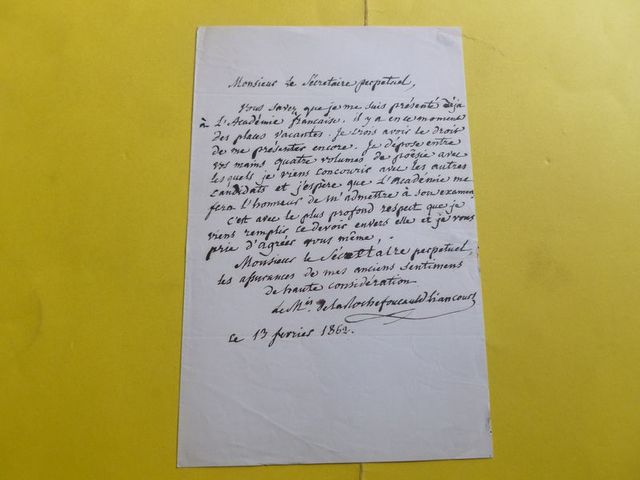 Monsieur le Sécretaire perpetuel,
Vous savez que je me suis présenté déja
à L'Académie française. il y a en ce moment
des places vacantes. Je crois avoir le droit
de me présenter encore. Je dépose entre
vos mains quatre volumes de poësie avec
les quels je viens concourir avec les autres
candidats et j'espère que L'Académie me
fera l'honneur de m'admettre à son examen
c'est avec le plus profond respect que je
viens remplir ce devoir envers elle et je vous
prie d'agréer vous même,
Monsieur le Sécretaire perpetuel
les assurances de mes anciens sentimens
de haute considération
le Mis. de la Rochefoucauld Liancourt
ce 13 fevrier 1862.